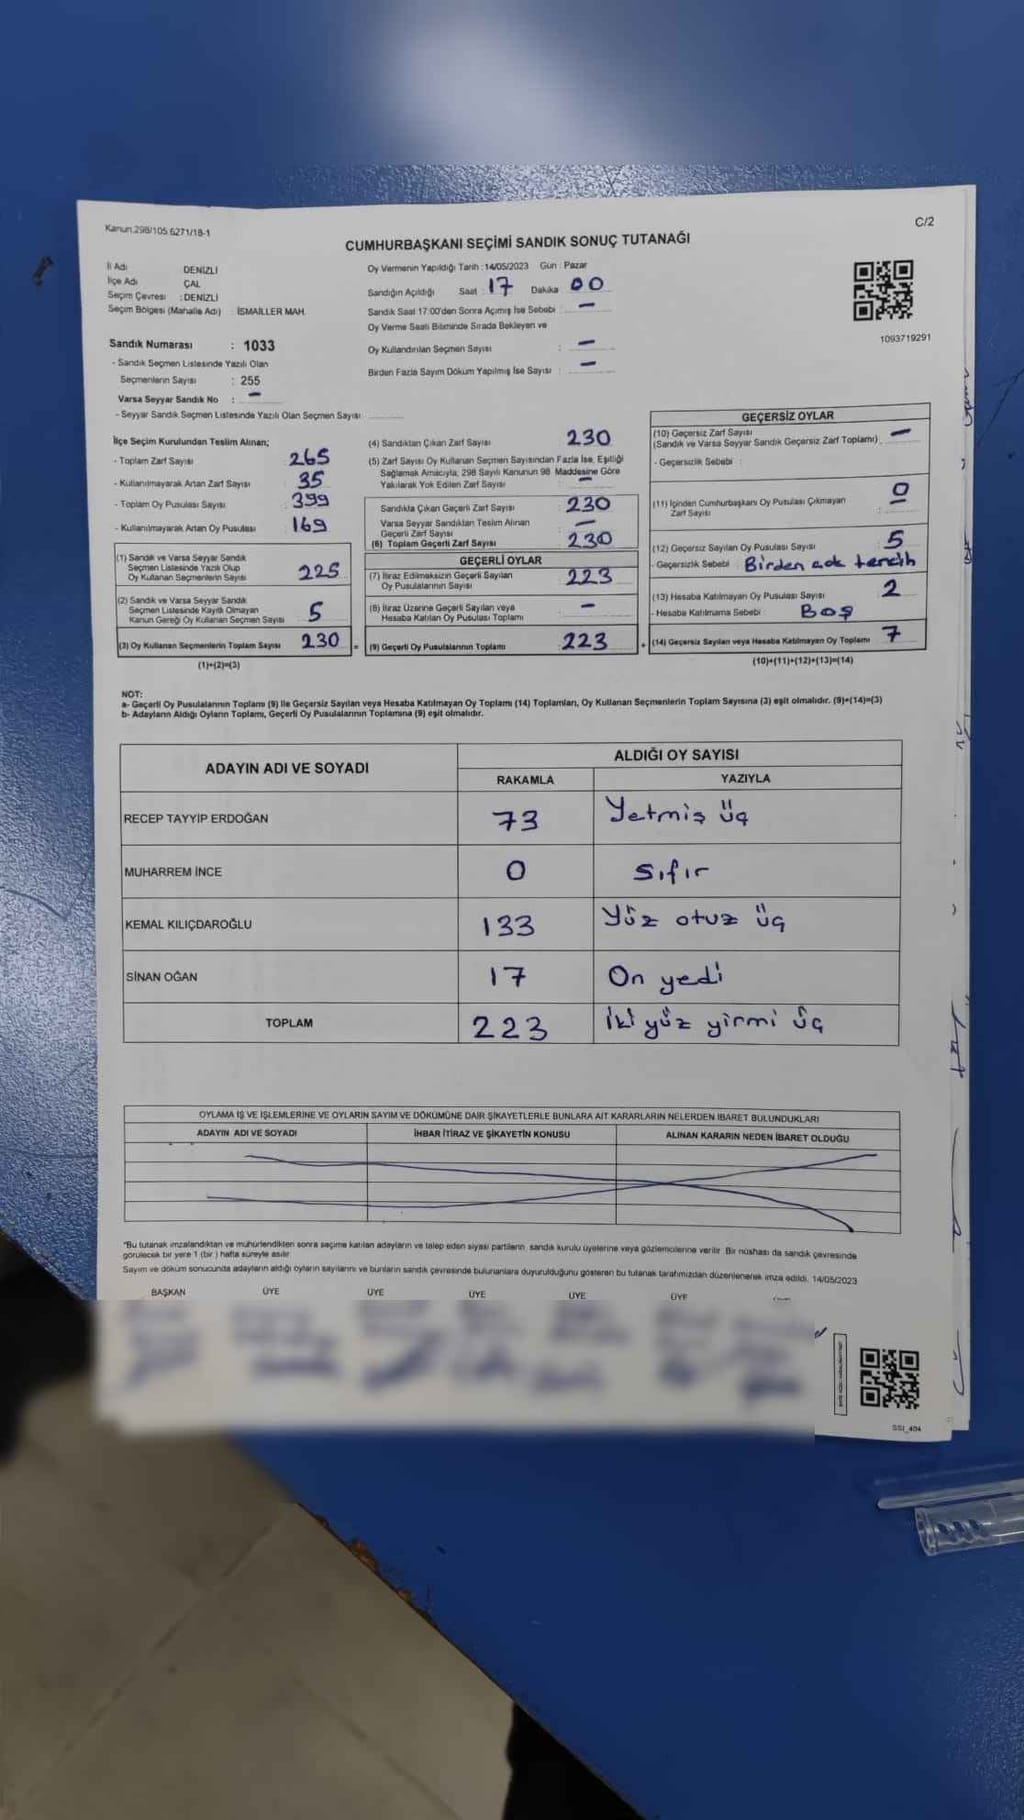 Kanun.298/105 6271/18-1
C/2
CUMHURBAŞKANI SEÇİMİ SANDIK SONUÇ TUTANAĞI
İl Adı DENİZLİ
İlçe Adı ÇAL
Seçim Çevresi : DENİZLİ
Seçim Bölgesi (Mahalle Adı) : İSMAİLLER MAH.
Sandık Numarası : 1033
- Sandık Seçmen Listesinde Yazılı Olan
Seçmenlerin Sayısı : 255
Varsa Seyyar Sandık No : -
- Seyyar Sandık Seçmen Listesinde Yazılı Olan Seçmen Sayısı
Oy Vermenin Yapıldığı Tarih : 14/05/2023 Gün : Pazar
Sandığın Açıldığı Saat : 17 Dakika 00
Sandık Saat 17:00'den Sonra Açımış İse Sebebi : -
Oy Verme Saati Bitiminde Sırada Bekleyen ve
Oy Kullandırılan Seçmen Sayısı : -
Birden Fazla Sayım Döküm Yapılmış İse Sayısı : -
1093719291
İlçe Seçim Kurulundan Teslim Alınan;
- Toplam Zarf Sayısı 265
- Kullanılmayarak Artan Zarf Sayısı 35
- Toplam Oy Pusulası Sayısı 399
- Kullanılmayarak Artan Oy Pusulası 169
(1) Sandık ve Varsa Seyyar Sandık
Seçmen Listesinde Yazılı Olup
Oy Kullanan Seçmenlerin Sayısı 225
(2) Sandık ve Varsa Seyyar Sandık
Seçmen Listesinde Kayıtlı Olmayan
Kanun Gereği Oy Kullanan Seçmen Sayısı 5
(3) Oy Kullanan Seçmenlerin Toplam Sayısı 230 =
(1)+(2)=(3)
(4) Sandıktan Çıkan Zarf Sayısı 230
(5) Zarf Sayısı Oy Kullanan Seçmen Sayısından Fazla İse, Eşitliği
Sağlamak Amacıyla, 298 Sayılı Kanunun 98. Maddesine Göre
Yakılarak Yok Edilen Zarf Sayısı : -
Sandıkla Çıkan Geçerli Zarf Sayısı 230
Varsa Seyyar Sandıktan Teslim Alınan
Geçerli Zarf Sayısı -
(6) Toplam Geçerli Zarf Sayısı 230
GEÇERLİ OYLAR
(7) İtiraz Edilmeksizin Geçerli Sayılan
Oy Pusulalarının Sayısı 223
(8) İtiraz Üzerine Geçerli Sayılan veya
Hesaba Katılan Oy Pusulası Toplamı -
(9) Geçerli Oy Pusulalarının Toplamı 223 +
GEÇERSİZ OYLAR
(10) Geçersiz Zarf Sayısı
(Sandık ve Varsa Seyyar Sandık Geçersiz Zarf Toplamı) -
- Geçersizlik Sebebi :
(11) İçinden Cumhurbaşkanı Oy Pusulası Çıkmayan
Zarf Sayısı : 0
(12) Geçersiz Sayılan Oy Pusulası Sayısı 5
- Geçersizlik Sebebi Birden çok tercih
(13) Hesaba Katılmayan Oy Pusulası Sayısı 2
- Hesaba Katılmama Sebebi : BOŞ
(14) Geçersiz Sayılan veya Hesaba Katılmayan Oy Toplamı 7
(10)+(11)+(12)+(13)=(14)
NOT:
a- Geçerli Oy Pusulalarının Toplamı (9) İle Geçersiz Sayılan veya Hesaba Katılmayan Oy Toplamı (14) Toplamları, Oy Kullanan Seçmenlerin Toplam Sayısına (3) eşit olmalıdır. (9)+(14)=(3)
b- Adayların Aldığı Oyların Toplamı, Geçerli Oy Pusulalarının Toplamına (9) eşit olmalıdır.
ADAYIN ADI VE SOYADI
ALDIĞI OY SAYISI
RAKAMLA YAZIYLA
RECEP TAYYİP ERDOĞAN 73 Yetmiş üç
MUHARREM İNCE 0 Sıfır
KEMAL KILIÇDAROĞLU 133 Yüz otuz üç
SİNAN OĞAN 17 On yedi
TOPLAM 223 İki yüz yirmi üç
OYLAMA İŞ VE İŞLEMLERİNE VE OYLARIN SAYIM VE DÖKÜMÜNE DAİR ŞİKAYETLERLE BUNLARA AİT KARARLARIN NELERDEN İBARET BULUNDUKLARI
ADAYIN ADI VE SOYADI İHBAR İTİRAZ VE ŞİKAYETİN KONUSU ALINAN KARARIN NEDEN İBARET OLDUĞU
*Bu tutanak imzalandıktan ve mühürlendikten sonra seçime katılan adayların ve talep eden siyasi partilerin sandık kurulu üyelerine veya gözlemcilerine verilir. Bir nüshası da sandık çevresinde
görülecek bir yere 1 (bir) hafta süreyle asılır.
Sayım ve döküm sonucunda adayların aldığı oyların sayılarını ve bunların sandık çevresinde bulunanlara duyurulduğunu gösteren bu tutanak tarafımızdan düzenlenerek imza edildi. 14/05/2023
BAŞKAN ÜYE ÜYE ÜYE ÜYE ÜYE
SSI_404